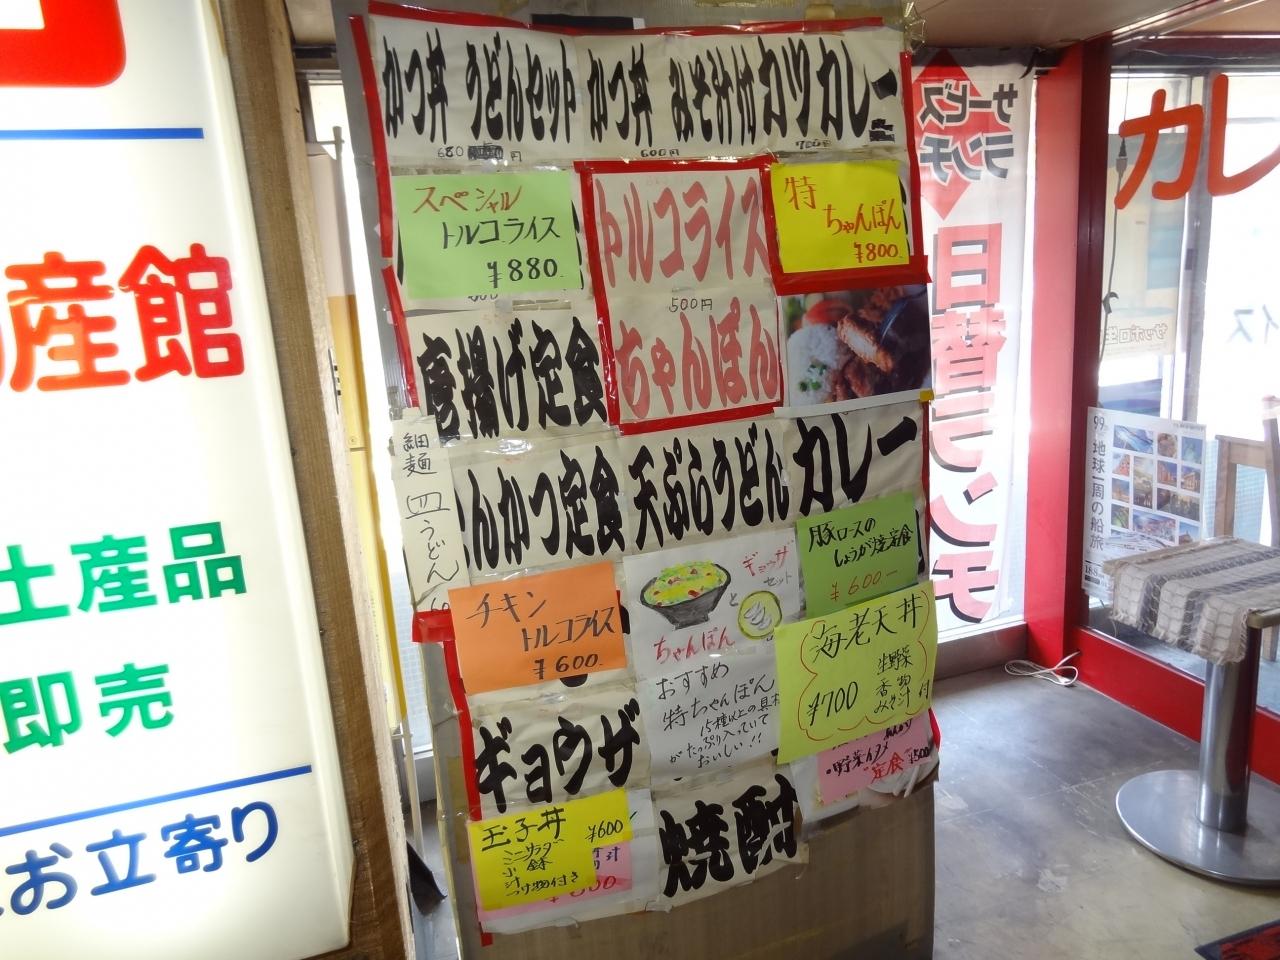 産館
土産品
即売
お立寄り
かつ丼 うどんセット
680 円
かつ丼 みそ汁付
600円
カツカレー
700円
スペシャル
トルコライス
¥880.
トルコライス
500円
ちゃんぽん
特
ちゃんぽん
¥800.
唐揚げ定食
細麺
皿うどん
んかつ定食
天ぷらうどん
カレー
チキン
トルコライス
¥600.
ギョウザ
セット
と
ちゃんぽん
おすすめ
特ちゃんぽん
15種以上の具材
がたっぷり入っていて
おいしい!!
豚ロースの
しょうが焼定食
¥600ー
海老天丼
¥700
生野菜
香物
みそ汁
付
・野菜イタメ
定食
¥500
ギョウザ
焼酎
玉子丼
¥600
ミニサラダ
小鉢
汁
つけ物付き
サービス
ランチ
日替ランチ
カレ
サッポロ生
99
地球一周の船旅